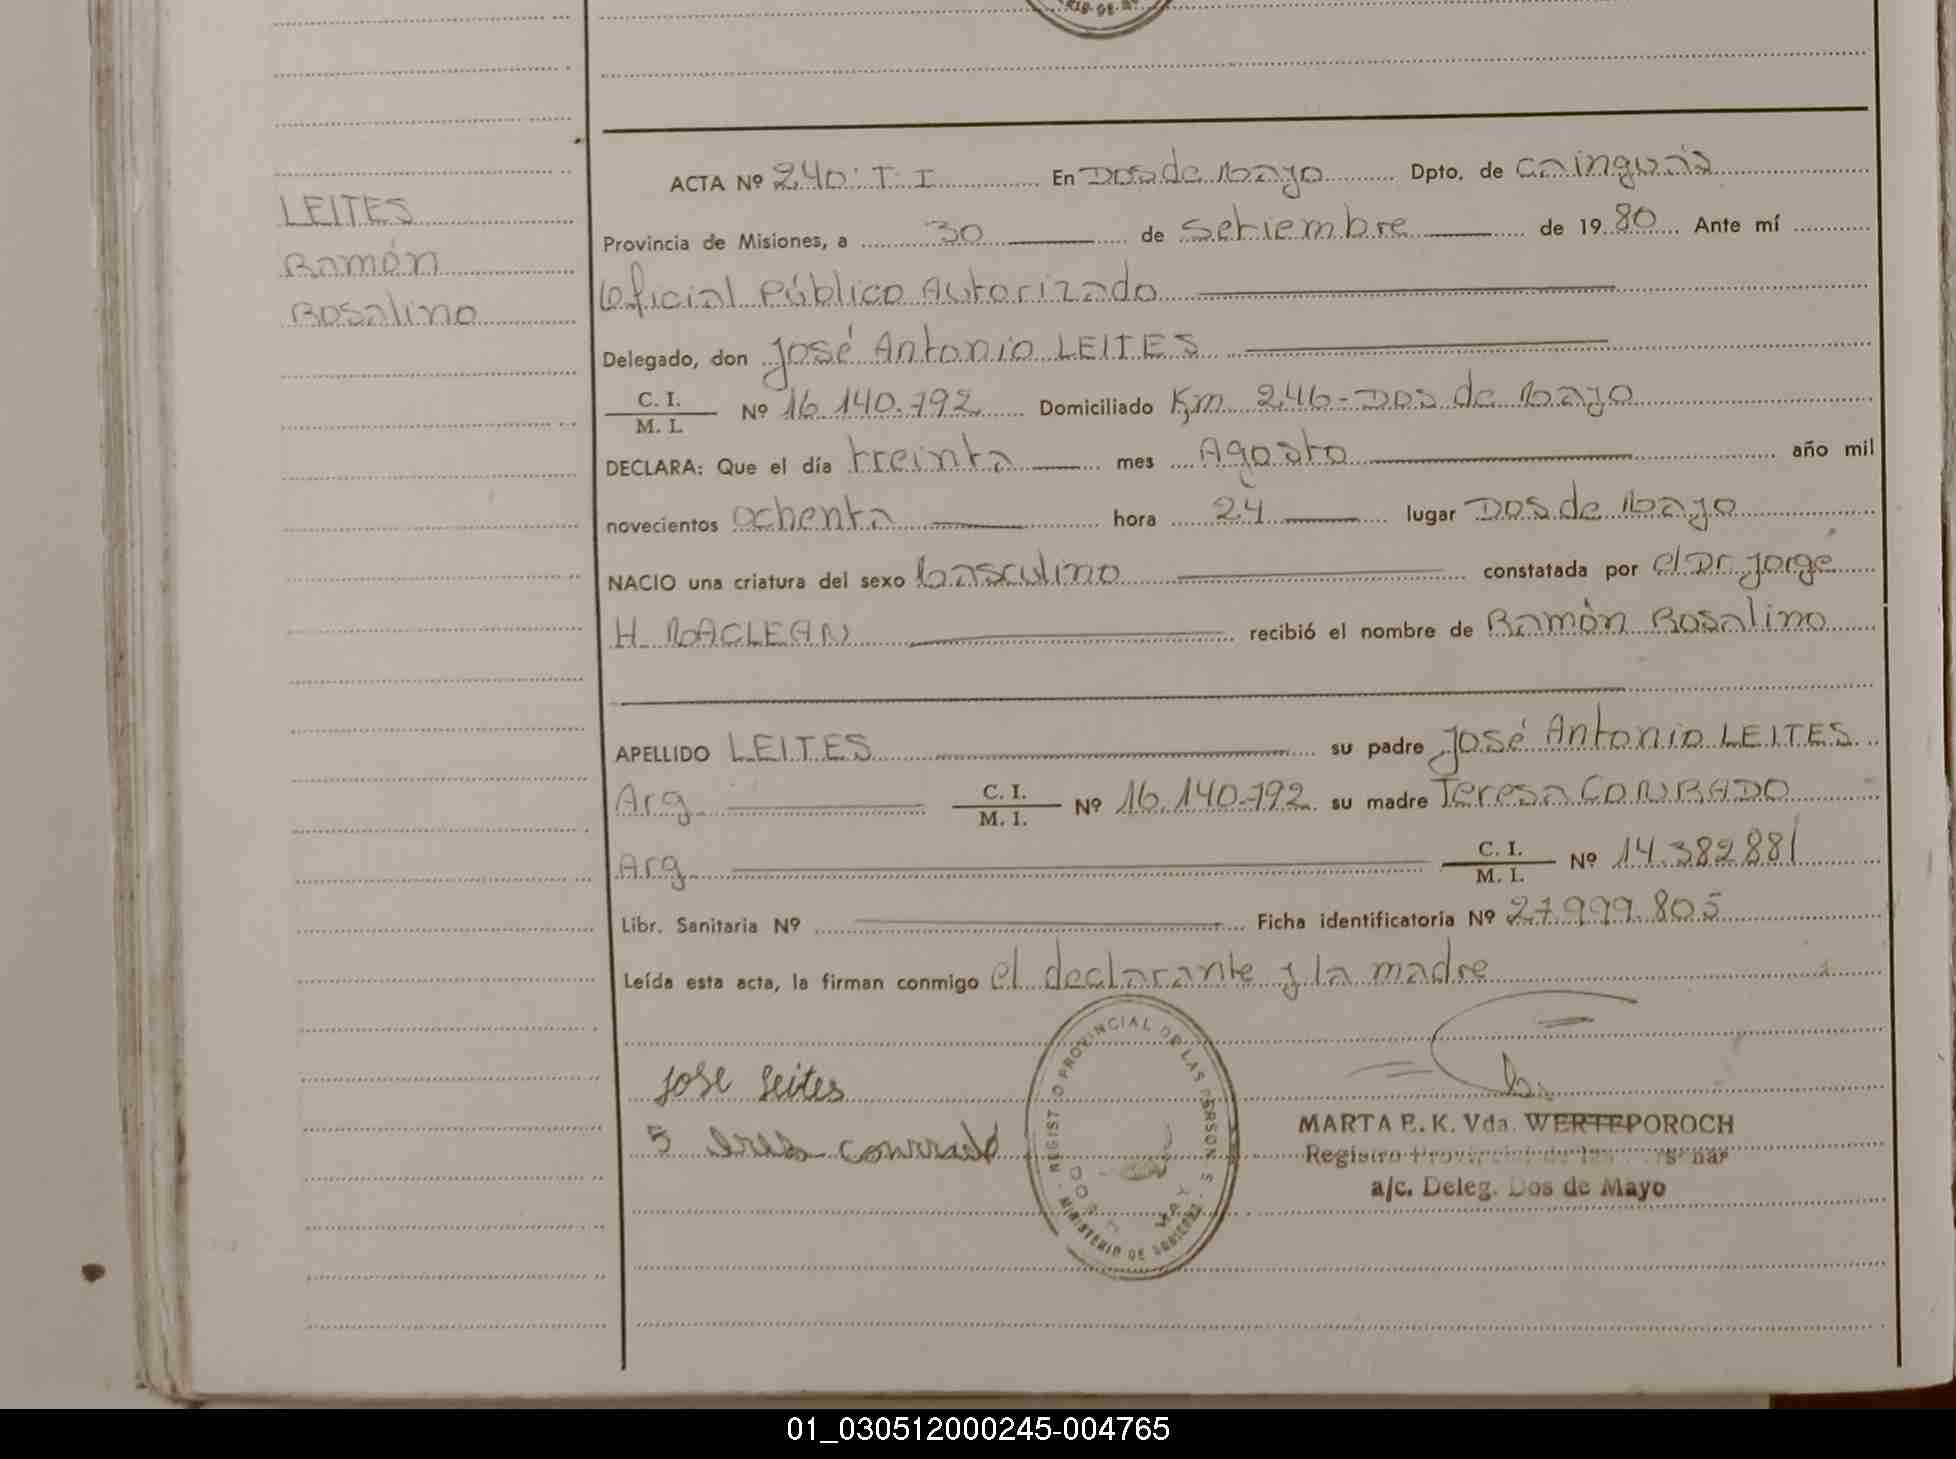 LEITES
Ramón
Rosalino
ACTA Nº 240 T. I En Dos de Mayo Dpto. de Cainguás
Provincia de Misiones, a 30 de setiembre de 1980 Ante mí
Oficial Público Autorizado
Delegado, don José Antonio LEITES
C. I. / M. I. Nº 16.140.792 Domiciliado Km 246 - Dos de Mayo
DECLARA: Que el día treinta mes Agosto año mil
novecientos ochenta hora 24 lugar Dos de Mayo
NACIO una criatura del sexo Masculino constatada por el Dr. Jorge
H. MACLEAN recibió el nombre de Ramón Rosalino
APELLIDO LEITES su padre José Antonio LEITES
Arg. C. I. / M. I. Nº 16.140.792 su madre Teresa CONRADO
Arg. C. I. / M. I. Nº 14.382881
Libr. Sanitaria Nº Ficha identificatoria Nº 27.999.805
Leída esta acta, la firman conmigo el declarante y la madre
José Leites
conrrado
REGISTRO PROVINCIAL DE LAS PERSONAS
MINISTERIO DE GOBIERNO
MARTA E. K. Vda. WERTEPOROCH
Registro Provincial de las Personas
a/c. Deleg. Dos de Mayo
01_030512000245-004765